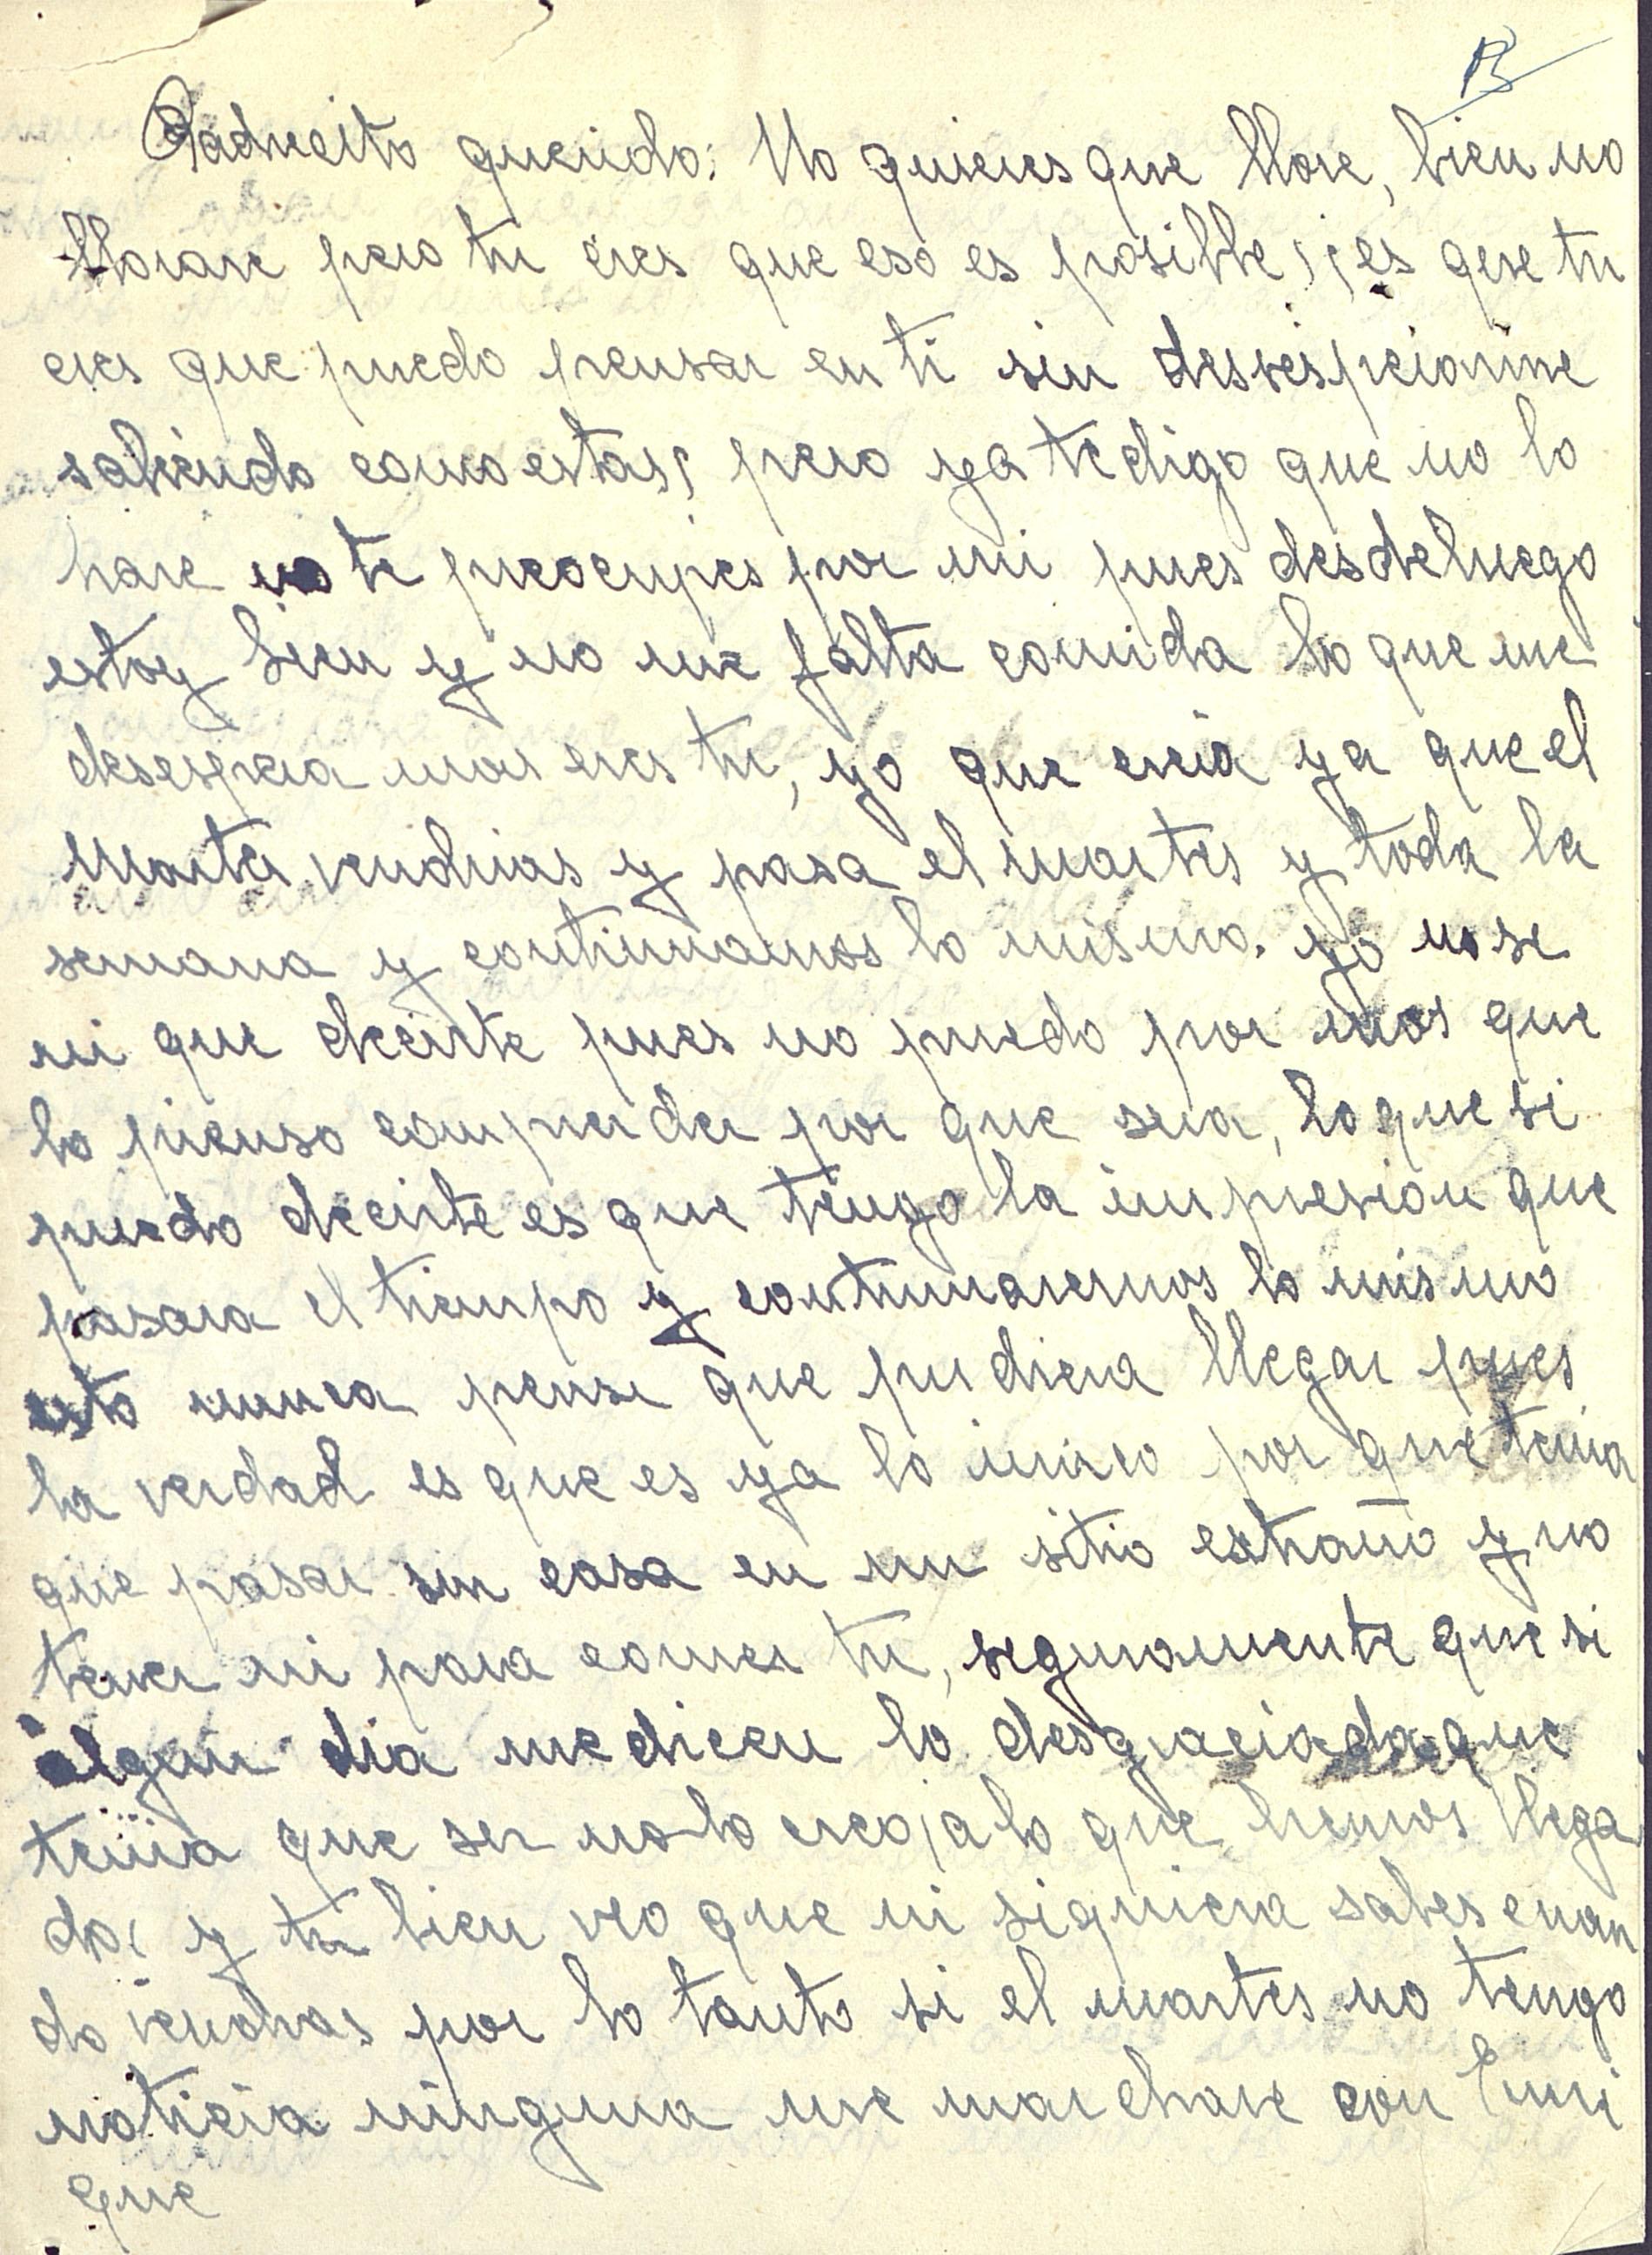 Padrecito querido: No quieres que llore, bien no
llorare pero tu crees que eso es posible; ¡es que tu
crees que puedo pensar en ti sin desesperarme
sabiendo como estas; pero ya te digo que no lo
hare no te preocupes por mi pues desdeluego
estoy bien y no me falta comida lo que me
desespera mas eres tu, yo que creia ya que el
Martes vendrias y pasa el martes y toda la
semana y continuamos lo mismo. yo no se
ni que decirte pues no puedo por mas que
lo pienso comprender por que sera, lo que si
puedo decirte es que tengo la impresion que
pasara el tiempo y continuaremos lo mismo
esto nunca pense que pudiera llegar pues
la verdad es que es ya lo unico por que tenia
que pasar sin casa en un sitio estraño y no
tener ni para comer tu, seguramente que si
algun dia me dicen lo desgraciada que
tenia que ser no lo creo ¡a lo que hemos llega
do! y tu bien veo que ni siquiera sabes cuan
do vendras por lo tanto si el martes no tengo
noticia ninguna me marchare con Enri
que